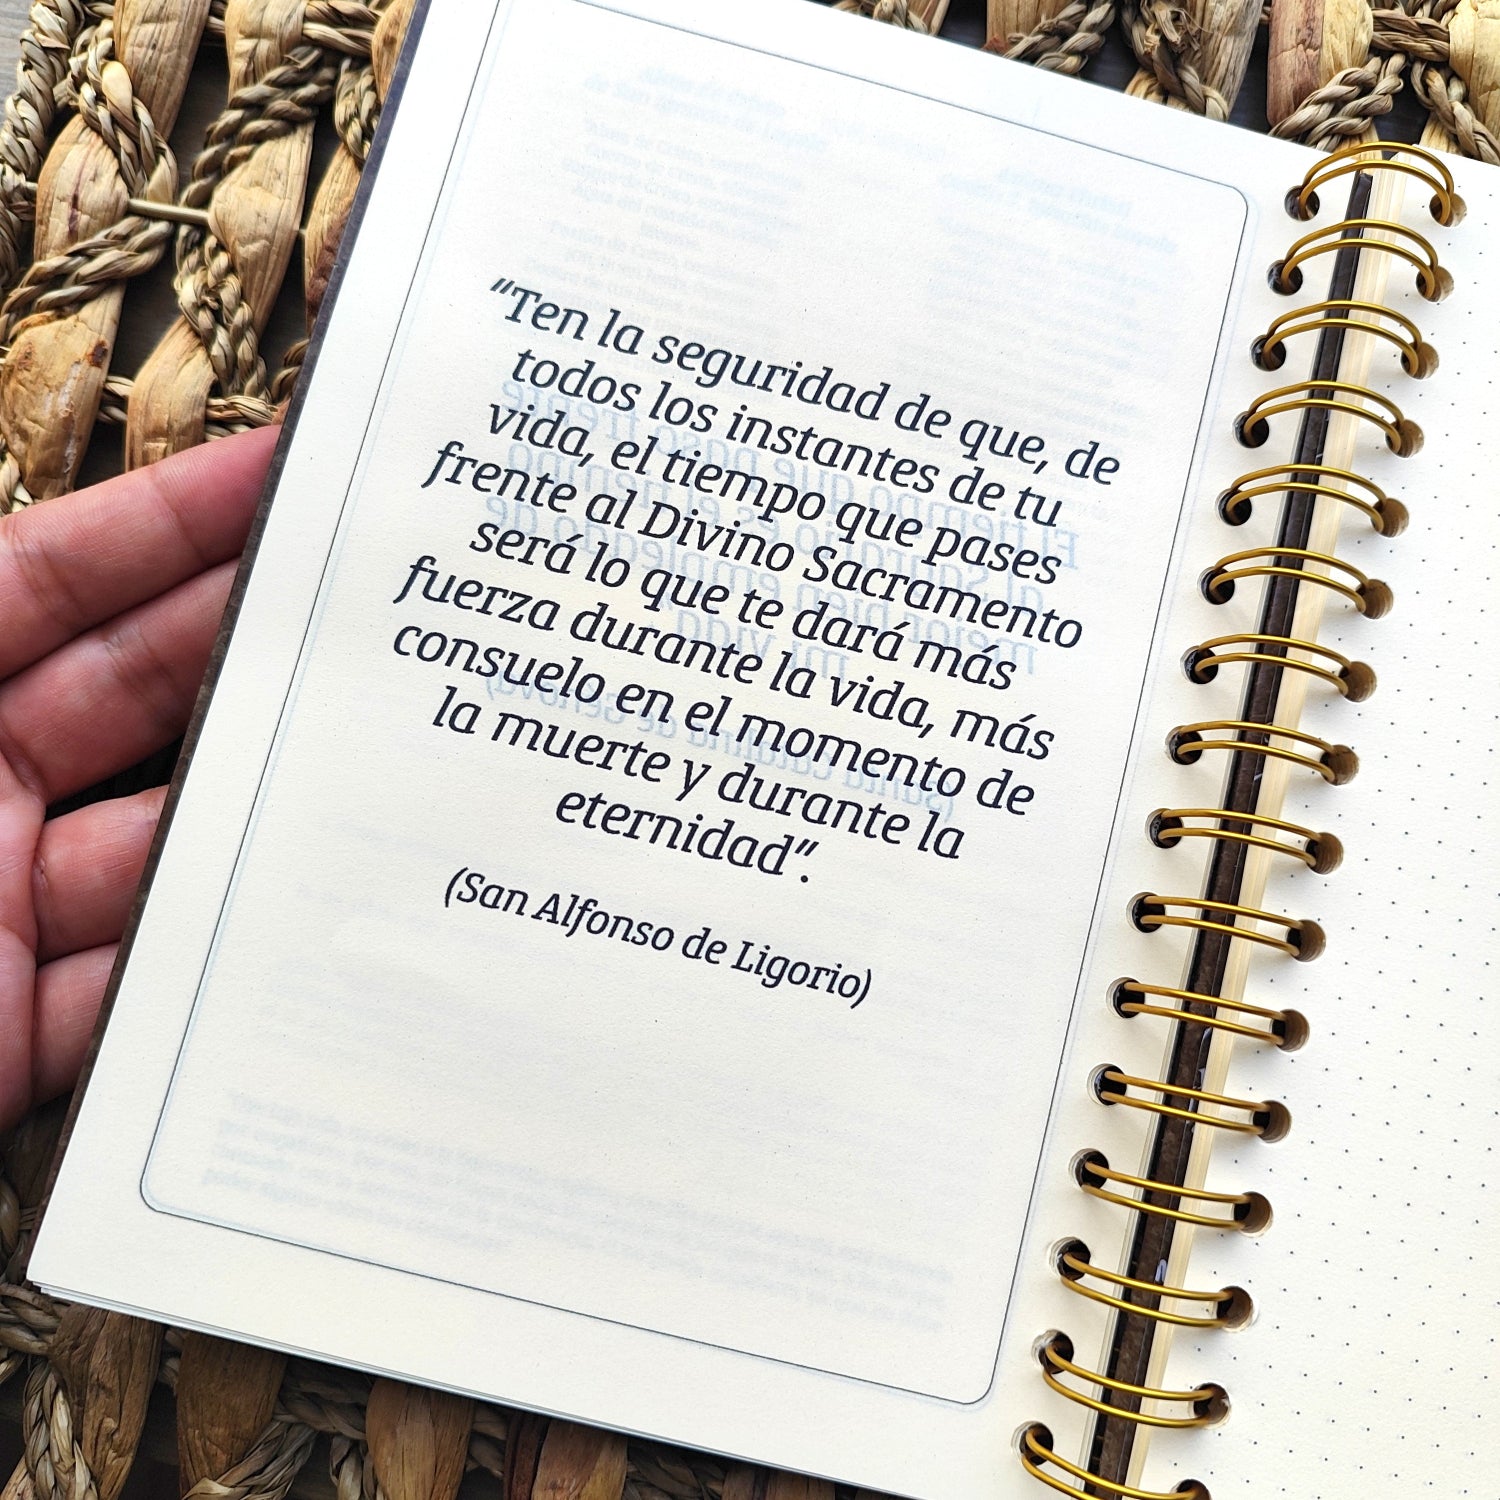 “Ten la seguridad de que, de
todos los instantes de tu
vida, el tiempo que pases
frente al Divino Sacramento
será lo que te dará más
fuerza durante la vida, más
consuelo en el momento de
la muerte y durante la
eternidad”.
(San Alfonso de Ligorio)